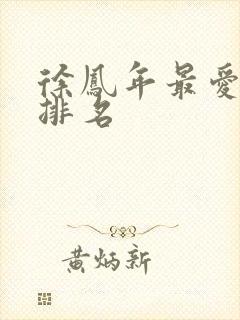 徐鳳年最愛
排名
黄炳新